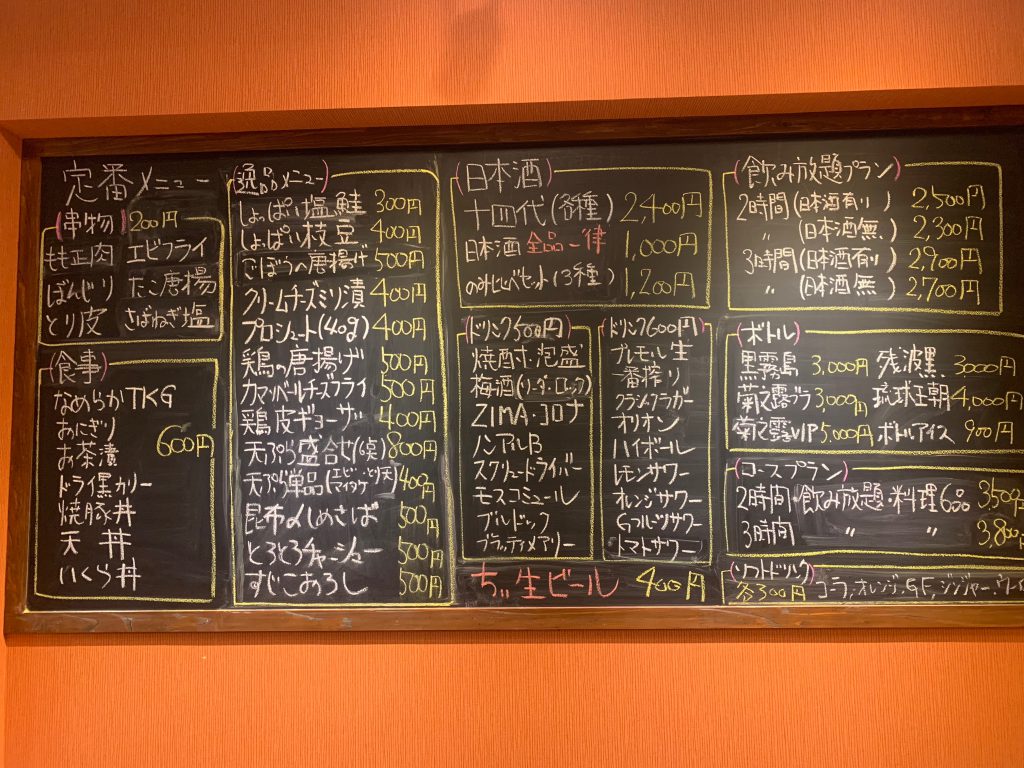 定番メニュー
(串物) 200円
もも正肉 エビフライ
ぼんじり たこ唐揚
とり皮 さばねぎ塩
(食事)
なめらかTKG
おにぎり
お茶漬
600円
ドライ黒カリー
焼豚丼
天丼
いくら丼
(逸品メニュー)
しょっぱい塩鮭 300円
しょっぱい枝豆 400円
ごぼうの唐揚げ 500円
クリームチーズミソ漬 400円
プロシュート(40g) 400円
鶏の唐揚げ 500円
カマンベールチーズフライ 500円
鶏皮ギョーザ 400円
天ぷら盛合せ(6点) 800円
天ぷら単品(エビ・とり天 マイタケ) 400円
昆布〆しめさば 500円
とろとろチャーシュー 500円
すじこおろし 500円
(日本酒)
十四代(各種) 2,400円
日本酒 全品一律 1,000円
のみ比べセット(3種) 1,200円
(ドリンク500円)
焼酎・泡盛
梅酒(ソーダ・ロック)
ZIMA・コロナ
ノンアルB
スクリュードライバー
モスコミュール
ブルドック
ブラッディメアリー
(ドリンク600円)
プレモル生
一番搾り
クラシックラガー
オリオン
ハイボール
レモンサワー
オレンジサワー
Gフルーツサワー
トマトサワー
ちぃ生ビール 400円
(飲み放題プラン)
2時間(日本酒有り) 2,500円
〃 (日本酒無) 2,300円
3時間(日本酒有り) 2,900円
〃 (日本酒無) 2,700円
(ボトル)
黒霧島 3,000円 残波黒 3000円
菊之露ブラ 3,000円 琉球王朝 4,000円
菊之露VIP 5,000円 ボトルアイス 900円
(コースプラン)
2時間 飲み放題・料理6品 3,500円
3時間 〃 〃 3,800円
(ソフトドリンク)
各300円 コーラ・オレンジ・G.F・ジンジャー・ウーロ